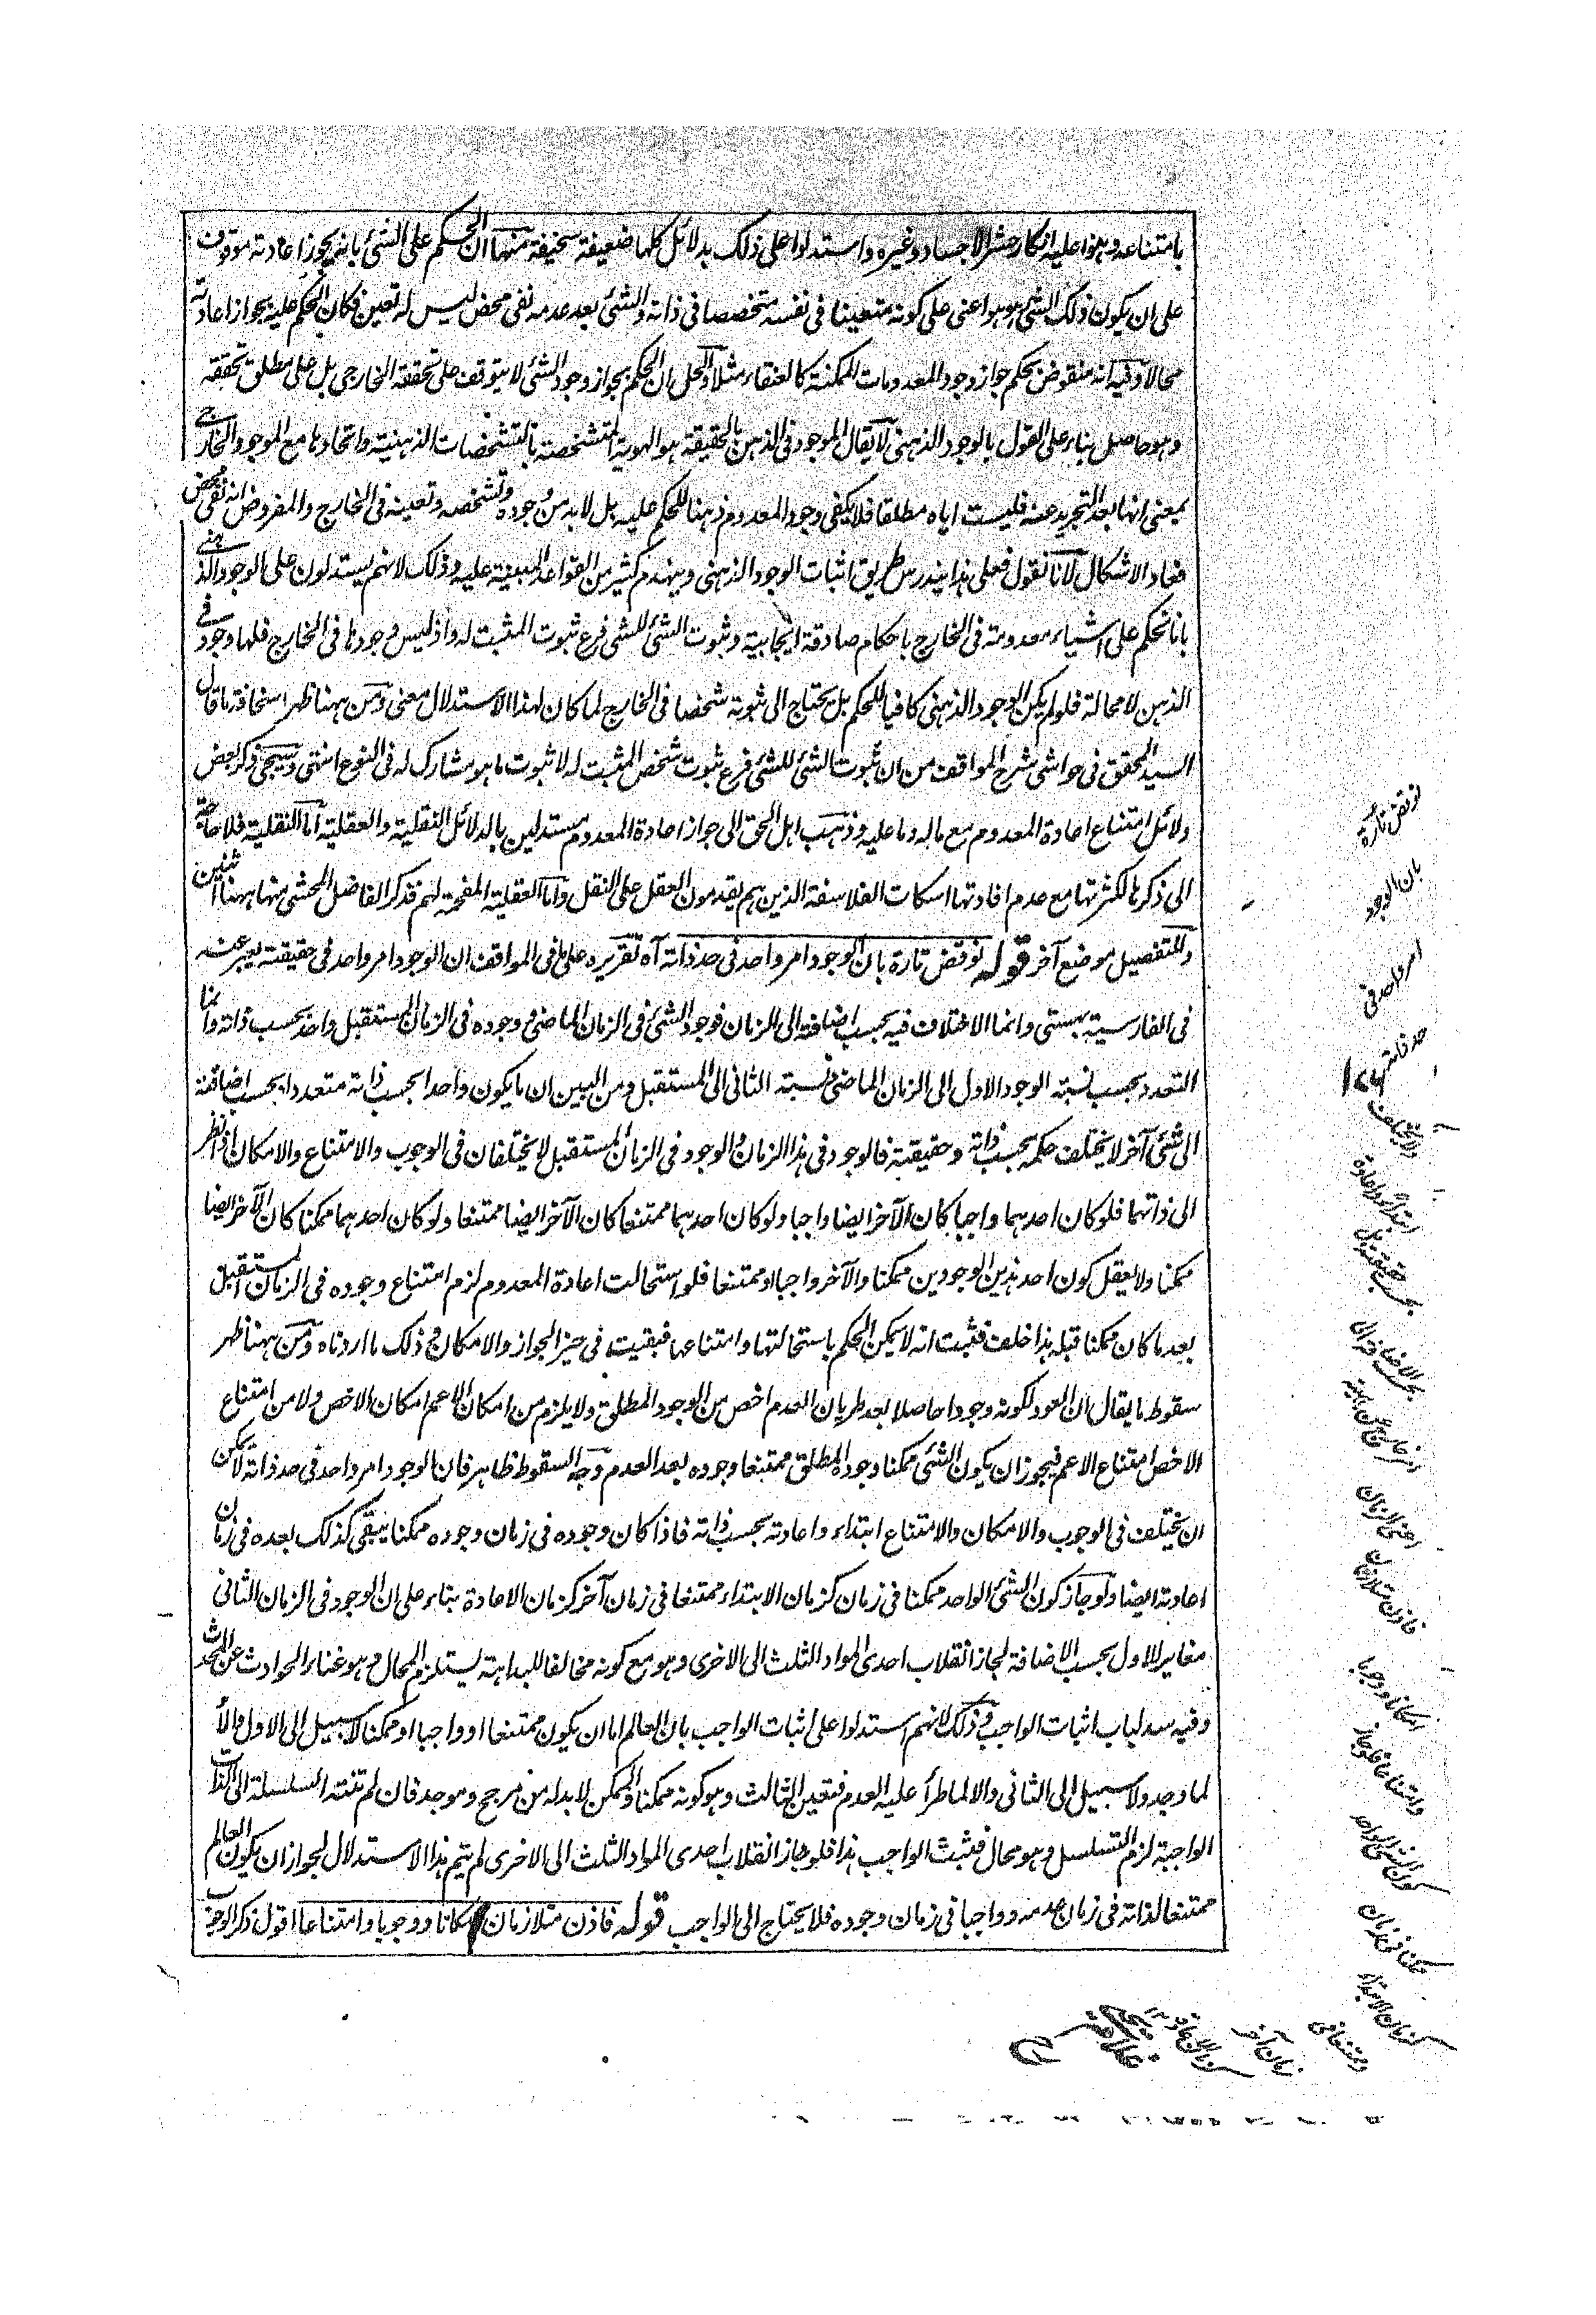 بامتناعه وبنوا عليه انكار حشر الاجساد وغيره واستدلوا على ذلك بدلائل كلها ضعيفة سخيفة منها ان الحكم على الشئ بانه يجوز اعادته موقوف
على ان يكون ذلك الشئ هو هو اعنى على كونه متعينا فى نفسه متخصصا فى ذاته والشئ بعد عدمه نفى محض ليس له تعين فكان الحكم عليه بجواز اعادته
محالا وفيه انه منقوض بحكم جواز وجود المعدومات الممكنة كالعنقاء مثلا والحل ان الحكم بجواز وجود الشئ لا يتوقف على تحققه الخارجى بل على مطلق تحققه
وهو حاصل بناء على القول بالوجود الذهنى لا يقال الموجود فى الذهن بالحقيقة هو الهوية المتشخصة بالتشخصات الذهنية واتحادها مع الموجود الخارجى
بمعنى انها بعد التجريد عنه فليست اياه مطلقا فلا يكفى وجود المعدوم ذهنا للحكم عليه بل لا بد من وجوده وتشخصه وتعينه فى الخارج والمفروض انه نفى محض
فعاد الاشكال لانا نقول فعلى هذا يندرس طريق اثبات الوجود الذهنى وينهدم كثير من القواعد المبنية عليه وذلك لانهم يستدلون على الوجود الذهنى
بانا نحكم على اشياء معدومة فى الخارج باحكام صادقة ايجابية وثبوت الشئ للشئ فرع ثبوت المثبت له واذ ليس وجودها فى الخارج فلها وجود فى
الذهن لا محالة فلو لم يكن الوجود الذهنى كافيا للحكم بل يحتاج الى ثبوته شخصا فى الخارج لما كان لهذا الاستدلال معنى ومن ههنا ظهر اسخافة ما قال
السيد المحقق فى حواشى شرح المواقف من ان ثبوت الشئ للشئ فرع ثبوت شخص المثبت له لا ثبوت ما هو مشارك له فى النوع انتهى وسيجئ ذكر بعض
دلائل امتناع اعادة المعدوم مع ماله وما عليه وذهب اهل الحق الى جواز اعادة المعدوم مستدلين بالدلائل النقلية والعقلية اما النقلية فلا حاجة
الى ذكرها لكثرتها مع عدم افادتها اسكات الفلاسفة الذين هم يقدمون العقل على النقل واما العقلية المفحمة لهم فذكر الفاضل المحشى منها ههنا اثنين
وللتفصيل موضع آخر قوله نوقض تارة بان الوجود امر واحد فى حد ذاته آه تقريره على ما فى المواقف ان الوجود امر واحد فى حقيقته يعبر عنه
فى الفارسية بهستى وانما الاختلاف فيه بحسب اضافة الى الزمان فوجود الشئ فى الزمان الماضى ووجوده فى الزمان المستقبل واحد بحسب ذاته وانما
التعدد بحسب نسبة الوجود الاول الى الزمان الماضى ونسبة الثانى الى المستقبل ومن البين ان ما يكون واحدا بحسب ذاته متعددا بحسب اضافته
الى شئ آخر لا يختلف حكمه بحسب ذاته وحقيقته فالوجود فى هذا الزمان والوجود فى الزمان المستقبل لا يختلفان فى الوجوب والامتناع والامكان اذا نظر
الى ذاتهما فلو كان احدهما واجبا كان الآخر ايضا واجبا ولو كان احدهما ممتنعا كان الآخر ايضا ممتنعا ولو كان احدهما ممكنا كان الآخر ايضا
ممكنا ولا يعقل كون احد هذين الوجودين ممكنا والآخر واجبا او ممتنعا فلو استحالت اعادة المعدوم لزم امتناع وجوده فى الزمان المستقبل
بعد ما كان ممكنا قبله هذا خلف فثبت انه لا يمكن الحكم باستحالتها وامتناعها فبقيت فى حيز الجواز والامكان وذلك ما اردناه ومن ههنا ظهر
سقوط ما يقال ان العود لكونه وجودا حاصلا بعد طريان العدم اخص من الوجود المطلق ولا يلزم من امكان الاعم امكان الاخص ولا من امتناع
الاخص امتناع الاعم فيجوز ان يكون الشئ ممكنا وجوده المطلق ممتنعا وجوده بعد العدم وجه السقوط ظاهر فان الوجود امر واحد فى حد ذاته لا يمكن
ان يختلف فى الوجوب والامكان والامتناع ابتداء واعادته بحسب ذاته فاذا كان وجوده فى زمان وجوده ممكنا يبقى كذلك بعده فى زمان
اعادته ايضا ولو جاز كون الشئ الواحد ممكنا فى زمان كزمان الابتداء ممتنعا فى زمان آخر كزمان الاعادة بناء على ان الوجود فى الزمان الثانى
مغاير للاول بحسب الاضافة لجاز انقلاب احدى المواد الثلث الى الاخرى وهو مع كونه مخالفا للبداهة يستلزم المحال وهو غناء الحوادث عن المحدث
وفيه سد لباب اثبات الواجب وذلك لانهم استدلوا على اثبات الواجب بان العالم اما ان يكون ممتنعا او واجبا او ممكنا لا سبيل الى الاول والا
لما وجد ولا سبيل الى الثانى والا لما طرأ عليه العدم فتعين الثالث وهو كونه ممكنا والممكن لا بد له من مرجح وموجد فان لم تنته السلسلة الى الذات
الواجبة لزم التسلسل وهو محال فثبت الواجب هذا فلو جاز انقلاب احدى المواد الثلث الى الاخرى لم يتم هذا الاستدلال لجواز ان يكون العالم
ممتنعا لذاته فى زمان عدمه وواجبا فى زمان وجوده فلا يحتاج الى الواجب قوله فاذن متلازمان امكانا ووجوبا وامتناعا اقول ذكر الوجوب
نوقض تارة
بان الوجود
امر واحد فى
حد ذاته
ولا يختلف
ابتداء واعادة
بحسب حقيقته بل
بحسب الاضافة الى
امر خارج عن ماهيته
اعنى الزمان
فاذن متلازمان
امكانا ووجوبا
وامتناعا فلو جاز
كون الشئ الواحد
ممكنا فى زمان
كزمان الابتداء
وممتنعا فى
زمان آخر
كزمان الاعادة